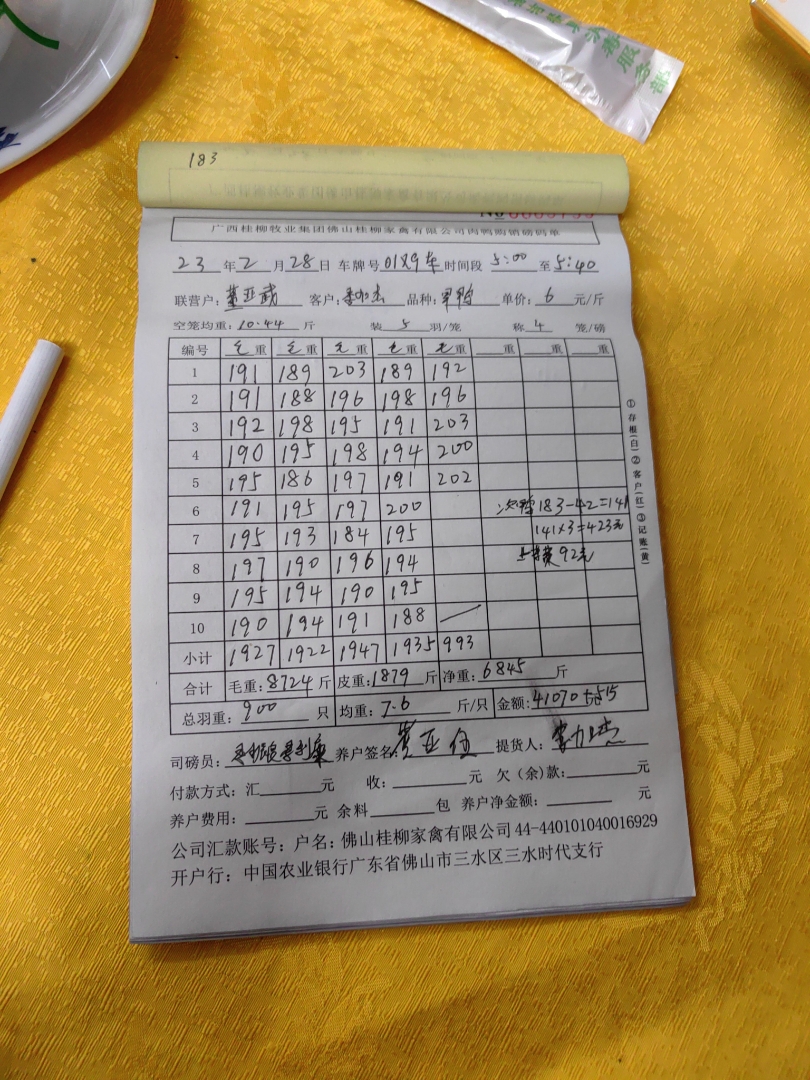 183
广西桂柳牧业集团佛山桂柳家禽有限公司肉鸭购销磅码单
23 年 2 月 28 日 车牌号 0189车 时间段 5:00 至 5:40
联营户: 客户: 品种: 单价: 6 元/斤
空笼均重: 10.44 斤 装 5 羽/笼 称 4 笼/磅
编号 毛重 毛重 毛重 毛重 毛重 重 重 重
1 191 189 203 189 192
2 191 188 196 198 196
3 192 198 195 191 203
4 190 195 198 194 200
5 195 186 197 191 202
6 191 195 197 200 次鸭 183-42=141
7 195 193 184 195 141×3=423元
8 197 190 196 194 92元
9 195 194 190 195
10 190 194 191 188
小计 1927 1922 1947 1935 993
合计 毛重: 8724 斤 皮重: 1879 斤 净重: 6845 斤
总羽重: 900 只 均重: 7.6 斤/只 金额: 41070+515
司磅员: 养户签名: 提货人:
付款方式: 汇 元 收: 元 欠(余)款: 元
养户费用: 元 余料 包 养户净金额: 元
公司汇款账号: 户名: 佛山桂柳家禽有限公司 44-440101040016929
开户行: 中国农业银行广东省佛山市三水区三水时代支行
①存根(白)②客户(红)③记账(黄)